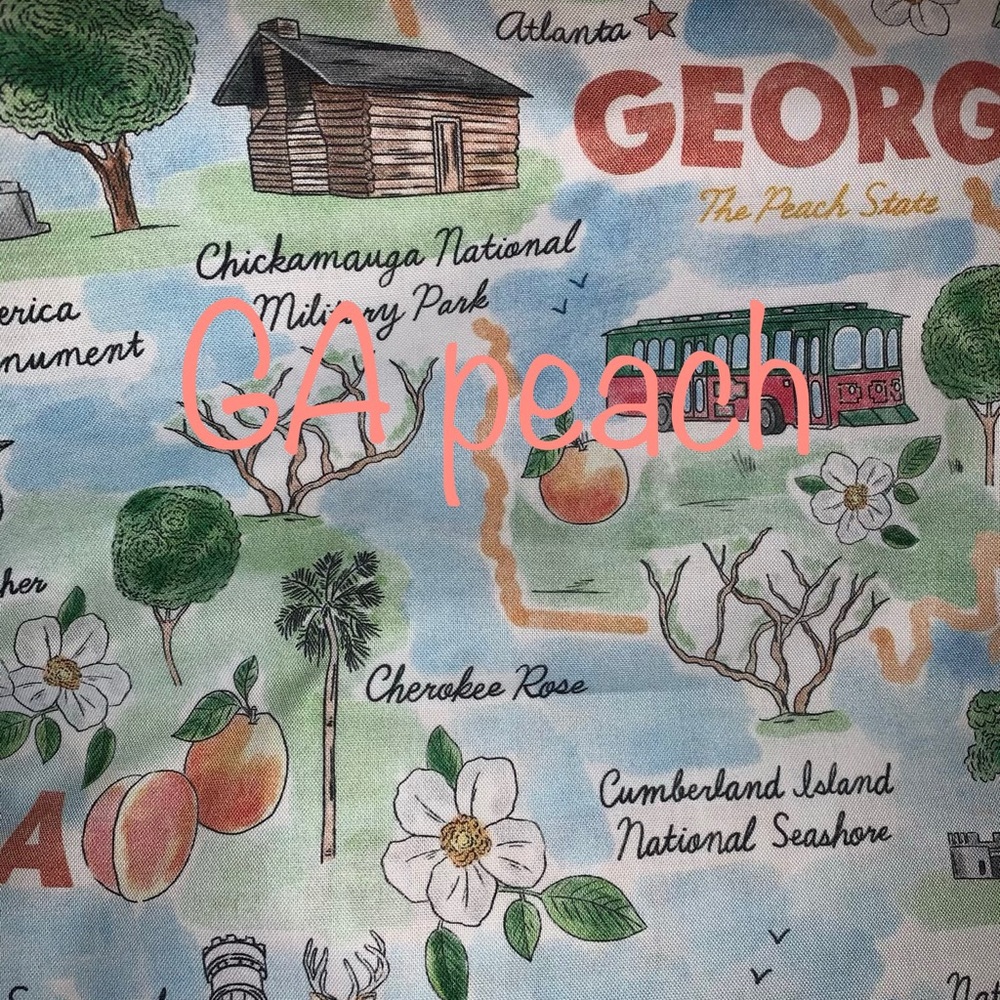 Atlanta
GEORG
The Peach State
Chickamauga National
Military Park
erica
nument
GA peach
her
Cherokee Rose
A
Cumberland Island
National Seashore